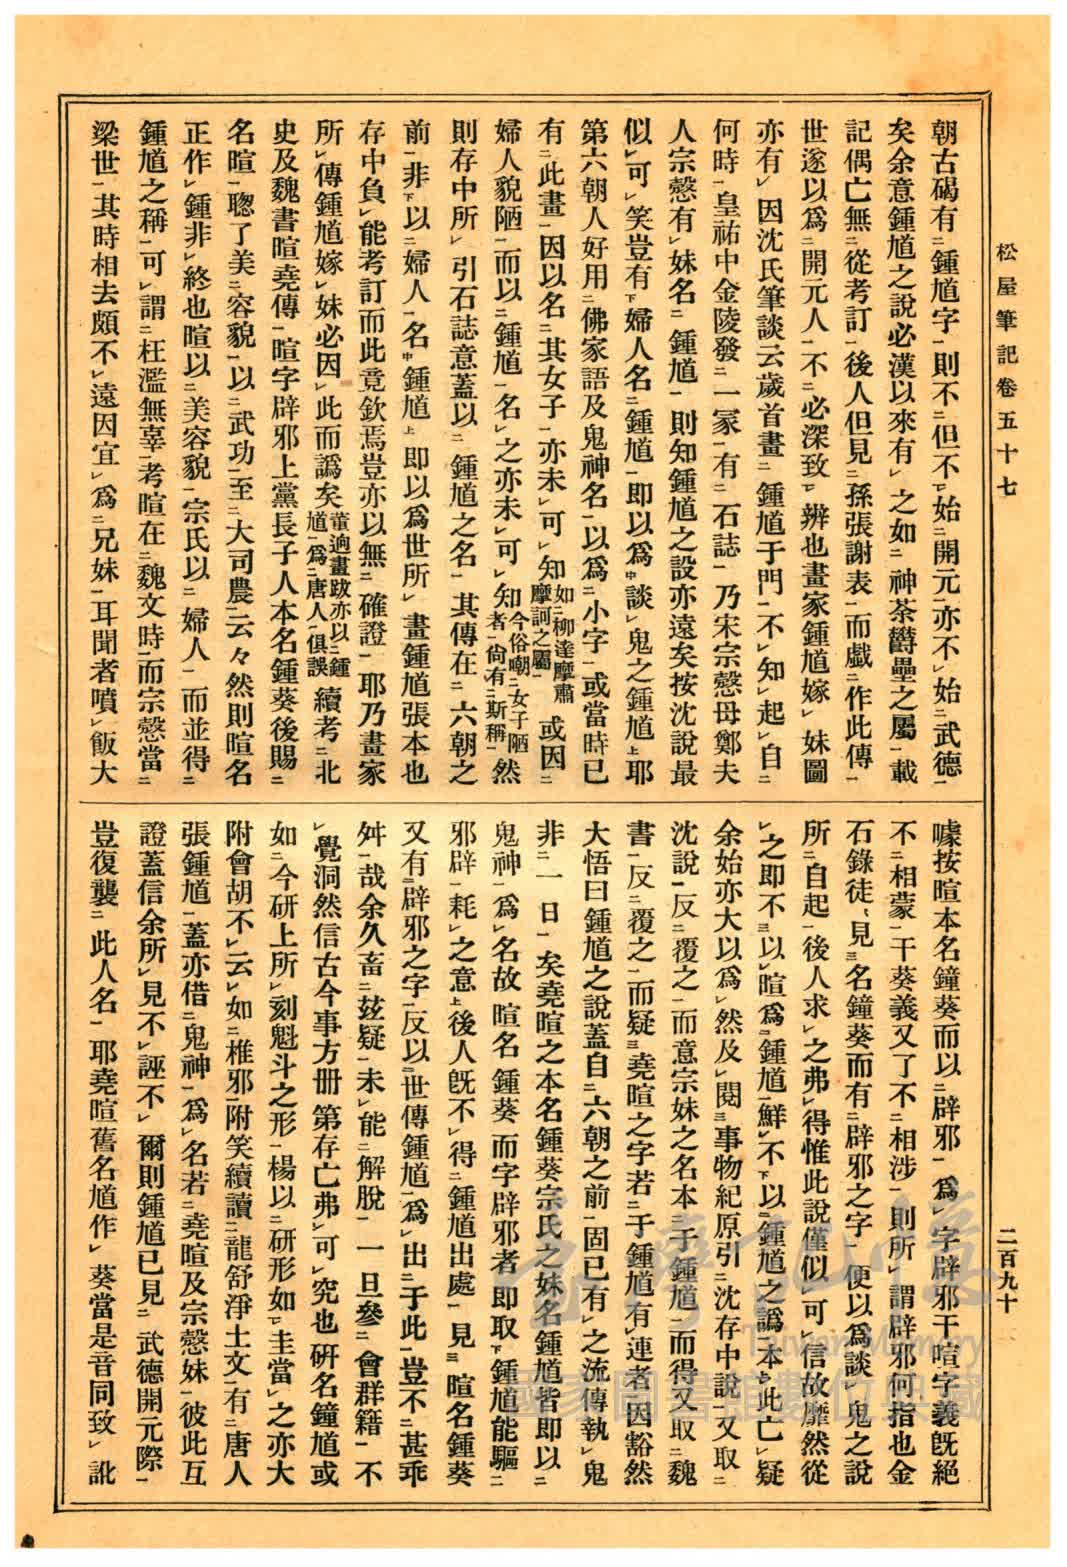 松屋筆記卷五十七
二百九十
朝古碣有㆓鍾馗字㆒則不㆓但不㆑始㆓開元亦不㆑始㆓武德㆒
矣余意鍾馗之說必漢以來有㆑之如㆓神荼欝壘之屬㆒載
記偶亡無㆓從考訂㆒後人但見㆓孫張謝表㆒而戲㆓作此傳㆒
世遂以爲㆓開元人㆒不㆓必深致㆑辨也畫家鍾馗嫁㆑妹圖
亦有㆑因沈氏筆談云歲首畫㆓鍾馗于門㆒不㆑知㆑起㆑自㆓
何時㆒皇祐中金陵發㆓一冢㆒有㆓石誌㆒乃宋宗愨母鄭夫
人宗愨有㆑妹名㆓鍾馗㆒則知鍾馗之設亦遠矣按沈說最
似㆑可㆑笑豈有㆘婦人名㆓鍾馗㆒即以爲㆗談㆑鬼之鍾馗㆖耶
第六朝人好用㆓佛家語及鬼神名㆒以爲㆓小字㆒或當時已
有㆓此畫㆒因以名㆓其女子㆒亦未㆑可㆑知如㆓柳達摩蕭摩訶之屬㆒或因㆓
婦人貌陋㆒而以㆓鍾馗㆒名㆑之亦未㆑可㆑知今俗嘲㆓女子陋者㆒尙有㆓斯稱㆒然
則存中所㆑引石誌意蓋以㆓鍾馗之名㆒其傳在㆓六朝之
前㆒非㆘以㆓婦人㆒名㆗鍾馗㆖即以爲世所㆑畫鍾馗張本也
存中負㆑能考訂而此竟欽焉豈亦以無㆓確證㆒耶乃畫家
所㆑傳鍾馗嫁㆑妹必因㆑此而譌矣董逌畫跋亦以㆓鍾馗㆒爲㆓唐人㆒俱誤續考㆓北
史及魏書暄堯傳㆒暄字辟邪上黨長子人本名鍾葵後賜㆓
名暄㆒聰了美㆓容貌㆒以㆓武功㆒至㆓大司農㆒云々然則暄名
正作㆑鍾非㆑終也暄以㆓美容貌㆒宗氏以㆓婦人㆒而並得㆓
鍾馗之稱㆒可㆑謂㆓枉濫無辜㆒考暄在㆓魏文時㆒而宗愨當㆓
梁世㆒其時相去頗不㆑遠因宜㆑爲㆓兄妹㆒耳聞者噴㆑飯大
噱按暄本名鐘葵而以㆓辟邪㆒爲㆑字辟邪干喧字義旣絕
不㆓相蒙㆒干葵義又了不㆓相涉㆒則所㆑謂辟邪何指也金
石錄徒㆑見㆔名鐘葵而有㆓辟邪之字㆒便以爲㆑談㆑鬼之說
所㆓自起㆒後人求㆑之弗㆑得惟此說僅似㆑可㆑信故靡然從
㆑之即不㆔以㆑暄爲㆓鍾馗㆒鮮㆑不㆘以㆓鍾馗之譌㆒本㆗此亡㆑疑
余始亦大以爲㆑然及㆑閱㆔事物紀原引㆓沈存中說㆒又取㆓
沈說㆒反㆓覆之㆒而意宗妹之名本㆓于鍾馗㆒而得又取㆓魏
書㆒反㆓覆之㆒而疑㆔堯暄之字若㆓于鍾馗有㆑連者因豁然
大悟曰鍾馗之說蓋自㆓六朝之前㆒固已有㆑之流傳執㆑鬼
非㆓一日㆒矣堯暄之本名鍾葵宗氏之妹名鍾馗皆即以㆓
鬼神㆒爲㆑名故暄名鍾葵而字辟邪者即取㆘鍾馗能驅㆓
邪辟㆒耗㆑之意㆖後人旣不㆑得㆓鍾馗出處㆒見㆔暄名鍾葵
又有㆓辟邪之字㆒反以㆓世傳鍾馗㆒爲㆑出㆓于此㆒豈不㆓甚乖
舛㆒哉余久畜㆓玆疑㆒未㆑能㆓解脫㆒一旦參㆓會群籍㆒不
㆑覺洞然信古今事方冊第存亡弗㆑可㆑究也硏名鐘馗或
如㆓今硏上所㆑刻魁斗之形㆒楊以㆓硏形如㆑圭當㆑之亦大
附會胡不㆑云㆑如㆓椎邪㆒附笑續讀㆓龍舒淨土文㆒有㆓唐人
張鍾馗㆒蓋亦借㆓鬼神㆒爲㆑名若㆓堯暄及宗愨妹㆒彼此互
證蓋信余所㆑見不㆑誣不㆑爾則鍾馗已見㆓武德開元際㆒
豈復襲㆓此人名㆒耶堯暄舊名馗作㆑葵當是音同致㆑訛
臺灣記憶
Taiwan Memory
國家圖書館數位典藏